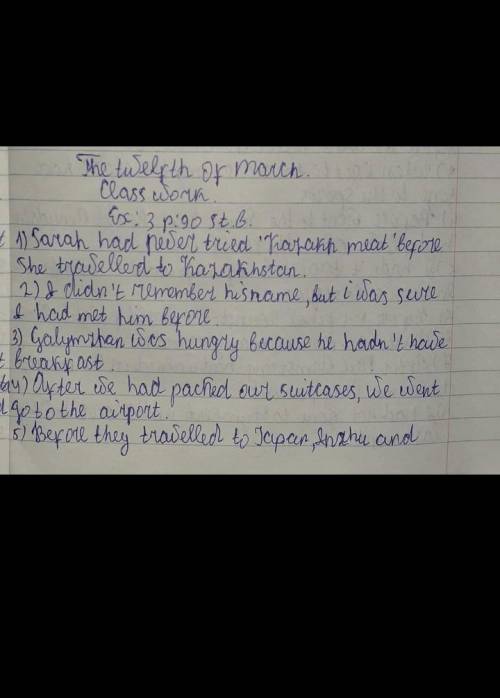 The twelfth of march.
Class work.
Ex: 3 p: 90 st. b.
1) Sarah had never tried 'Kazakh meat' before
She travelled to Kazakhstan.
2) I didn't remember his name, but i was sure
I had met him before.
3) Galymzhan was hungry because he hadn't have
breakfast.
4) After we had packed our suitcases, we went
go to the airport.
5) Before they travelled to Japan, Inzhu and